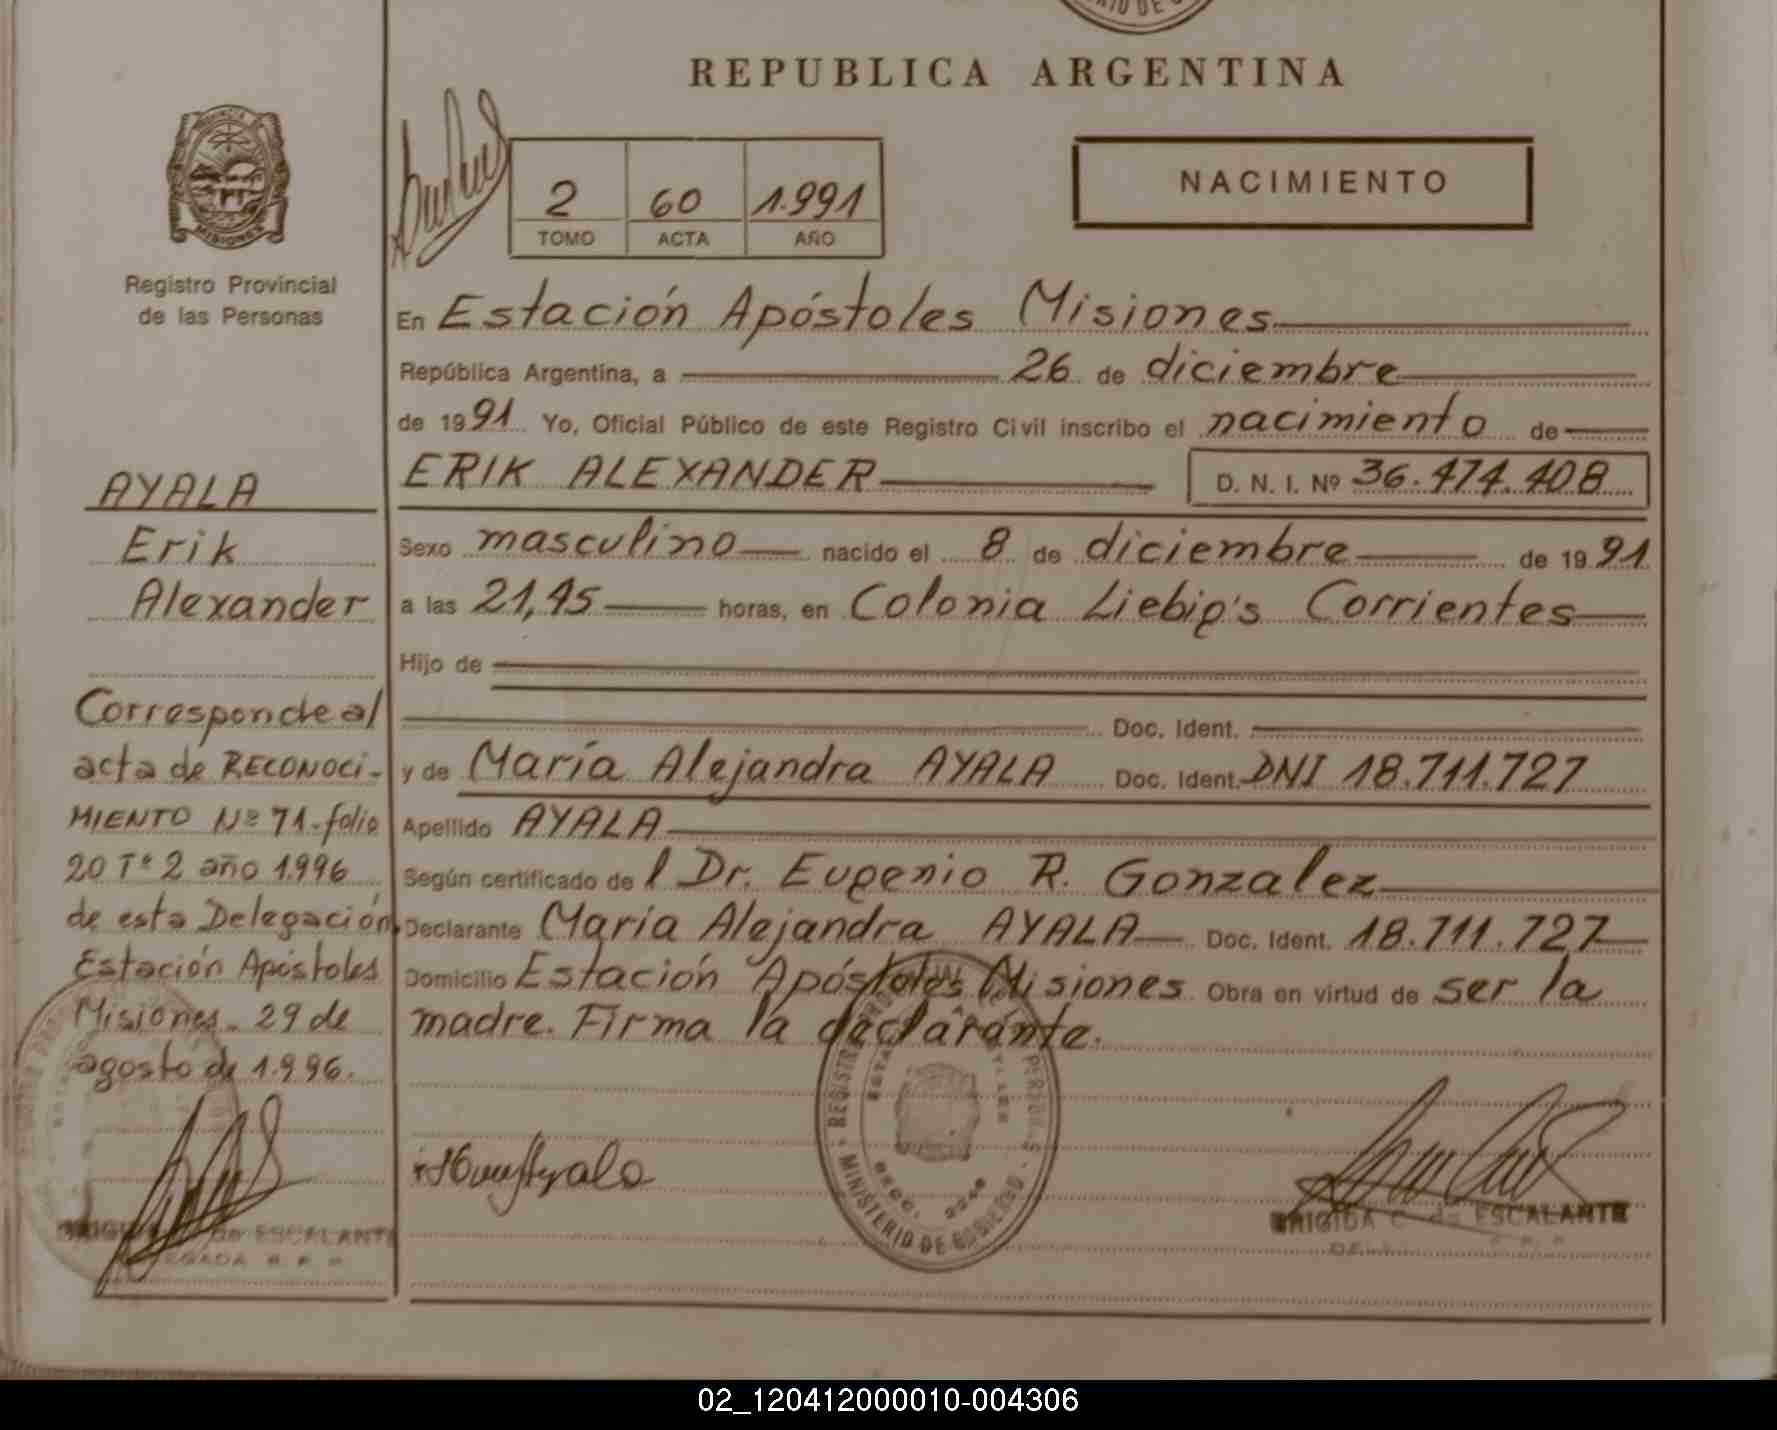 REPUBLICA ARGENTINA
NACIMIENTO
2 60 1.991
TOMO ACTA AÑO
MISIONES
Registro Provincial
de las Personas
En Estación Apóstoles Misiones
República Argentina, a 26 de diciembre
de 1991 Yo, Oficial Público de este Registro Civil inscribo el nacimiento de
ERIK ALEXANDER D. N. I. Nº 36.474.408
Sexo masculino nacido el 8 de diciembre de 1991
a las 21,45 horas, en Colonia Liebig's Corrientes
Hijo de
Doc. Ident.
y de María Alejandra AYALA Doc. Ident. DNI 18.711.727
Apellido AYALA
Según certificado del Dr. Eugenio R. Gonzalez
Declarante María Alejandra AYALA Doc. Ident. 18.711.727
Domicilio Estación Apóstoles Misiones Obra en virtud de ser la
madre. Firma la declarante.
AYALA
Erik
Alexander
Corresponde al
acta de RECONOCI-
MIENTO Nº 71-folio
20 Tº 2 año 1.996
de esta Delegación
Estación Apóstoles
Misiones. 29 de
agosto de 1.996.
MINISTERIO DE GOBIERNO
BRIGIDA C. de ESCALANTE
de ESCALANTE
02_120412000010-004306